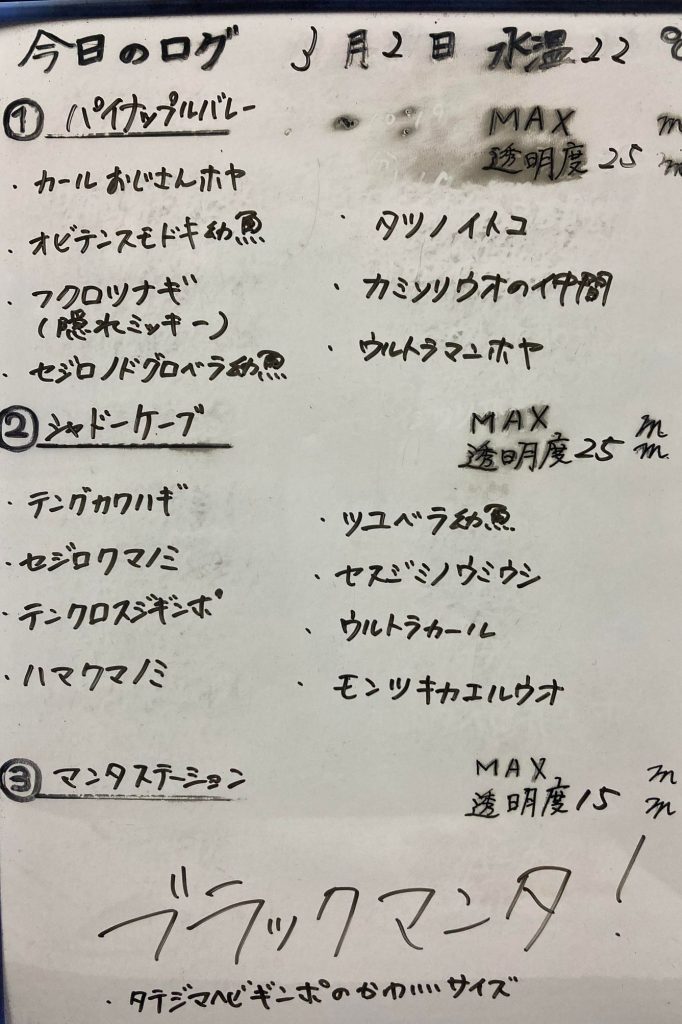 今日のログ 3月2日 水温22℃
① パイナップルバレー
MAX m
透明度25m
・カールおじさんホヤ
・オビテンスモドキ幼魚
・フクロツナギ
(隠れミッキー)
・セジロノドグロベラ幼魚
・タツノイトコ
・カミソリウオの仲間
・ウルトラマンホヤ
② シャドーケーブ
MAX m
透明度25m
・テングカワハギ
・セジロクマノミ
・テンクロスジギンポ
・ハマクマノミ
・ツユベラ幼魚
・セスジミノウミウシ
・ウルトラカール
・モンツキカエルウオ
③ マンタステーション
MAX m
透明度15m
ブラックマンタ!
・タテジマヘビギンポのかわいいサイズ